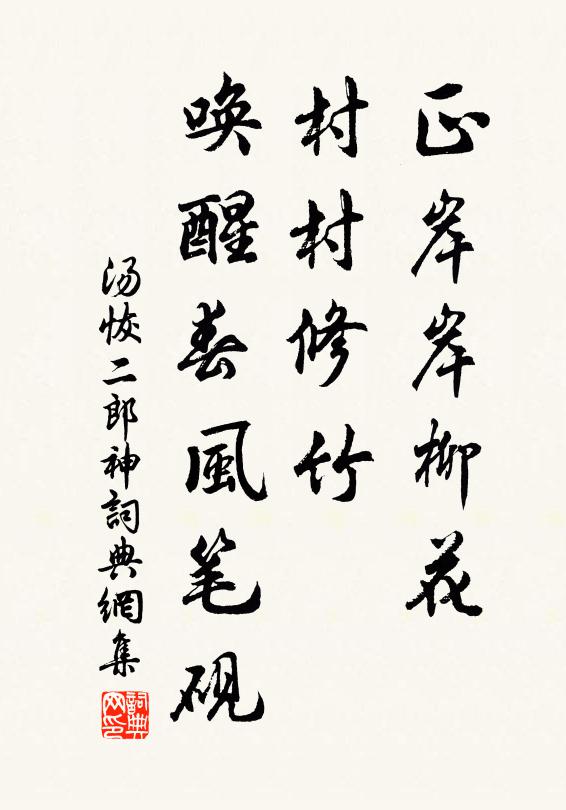 正岸岸柳花
村村修竹
唤醒春風笔砚
汤恢二郎神詞典網集
詞典网印